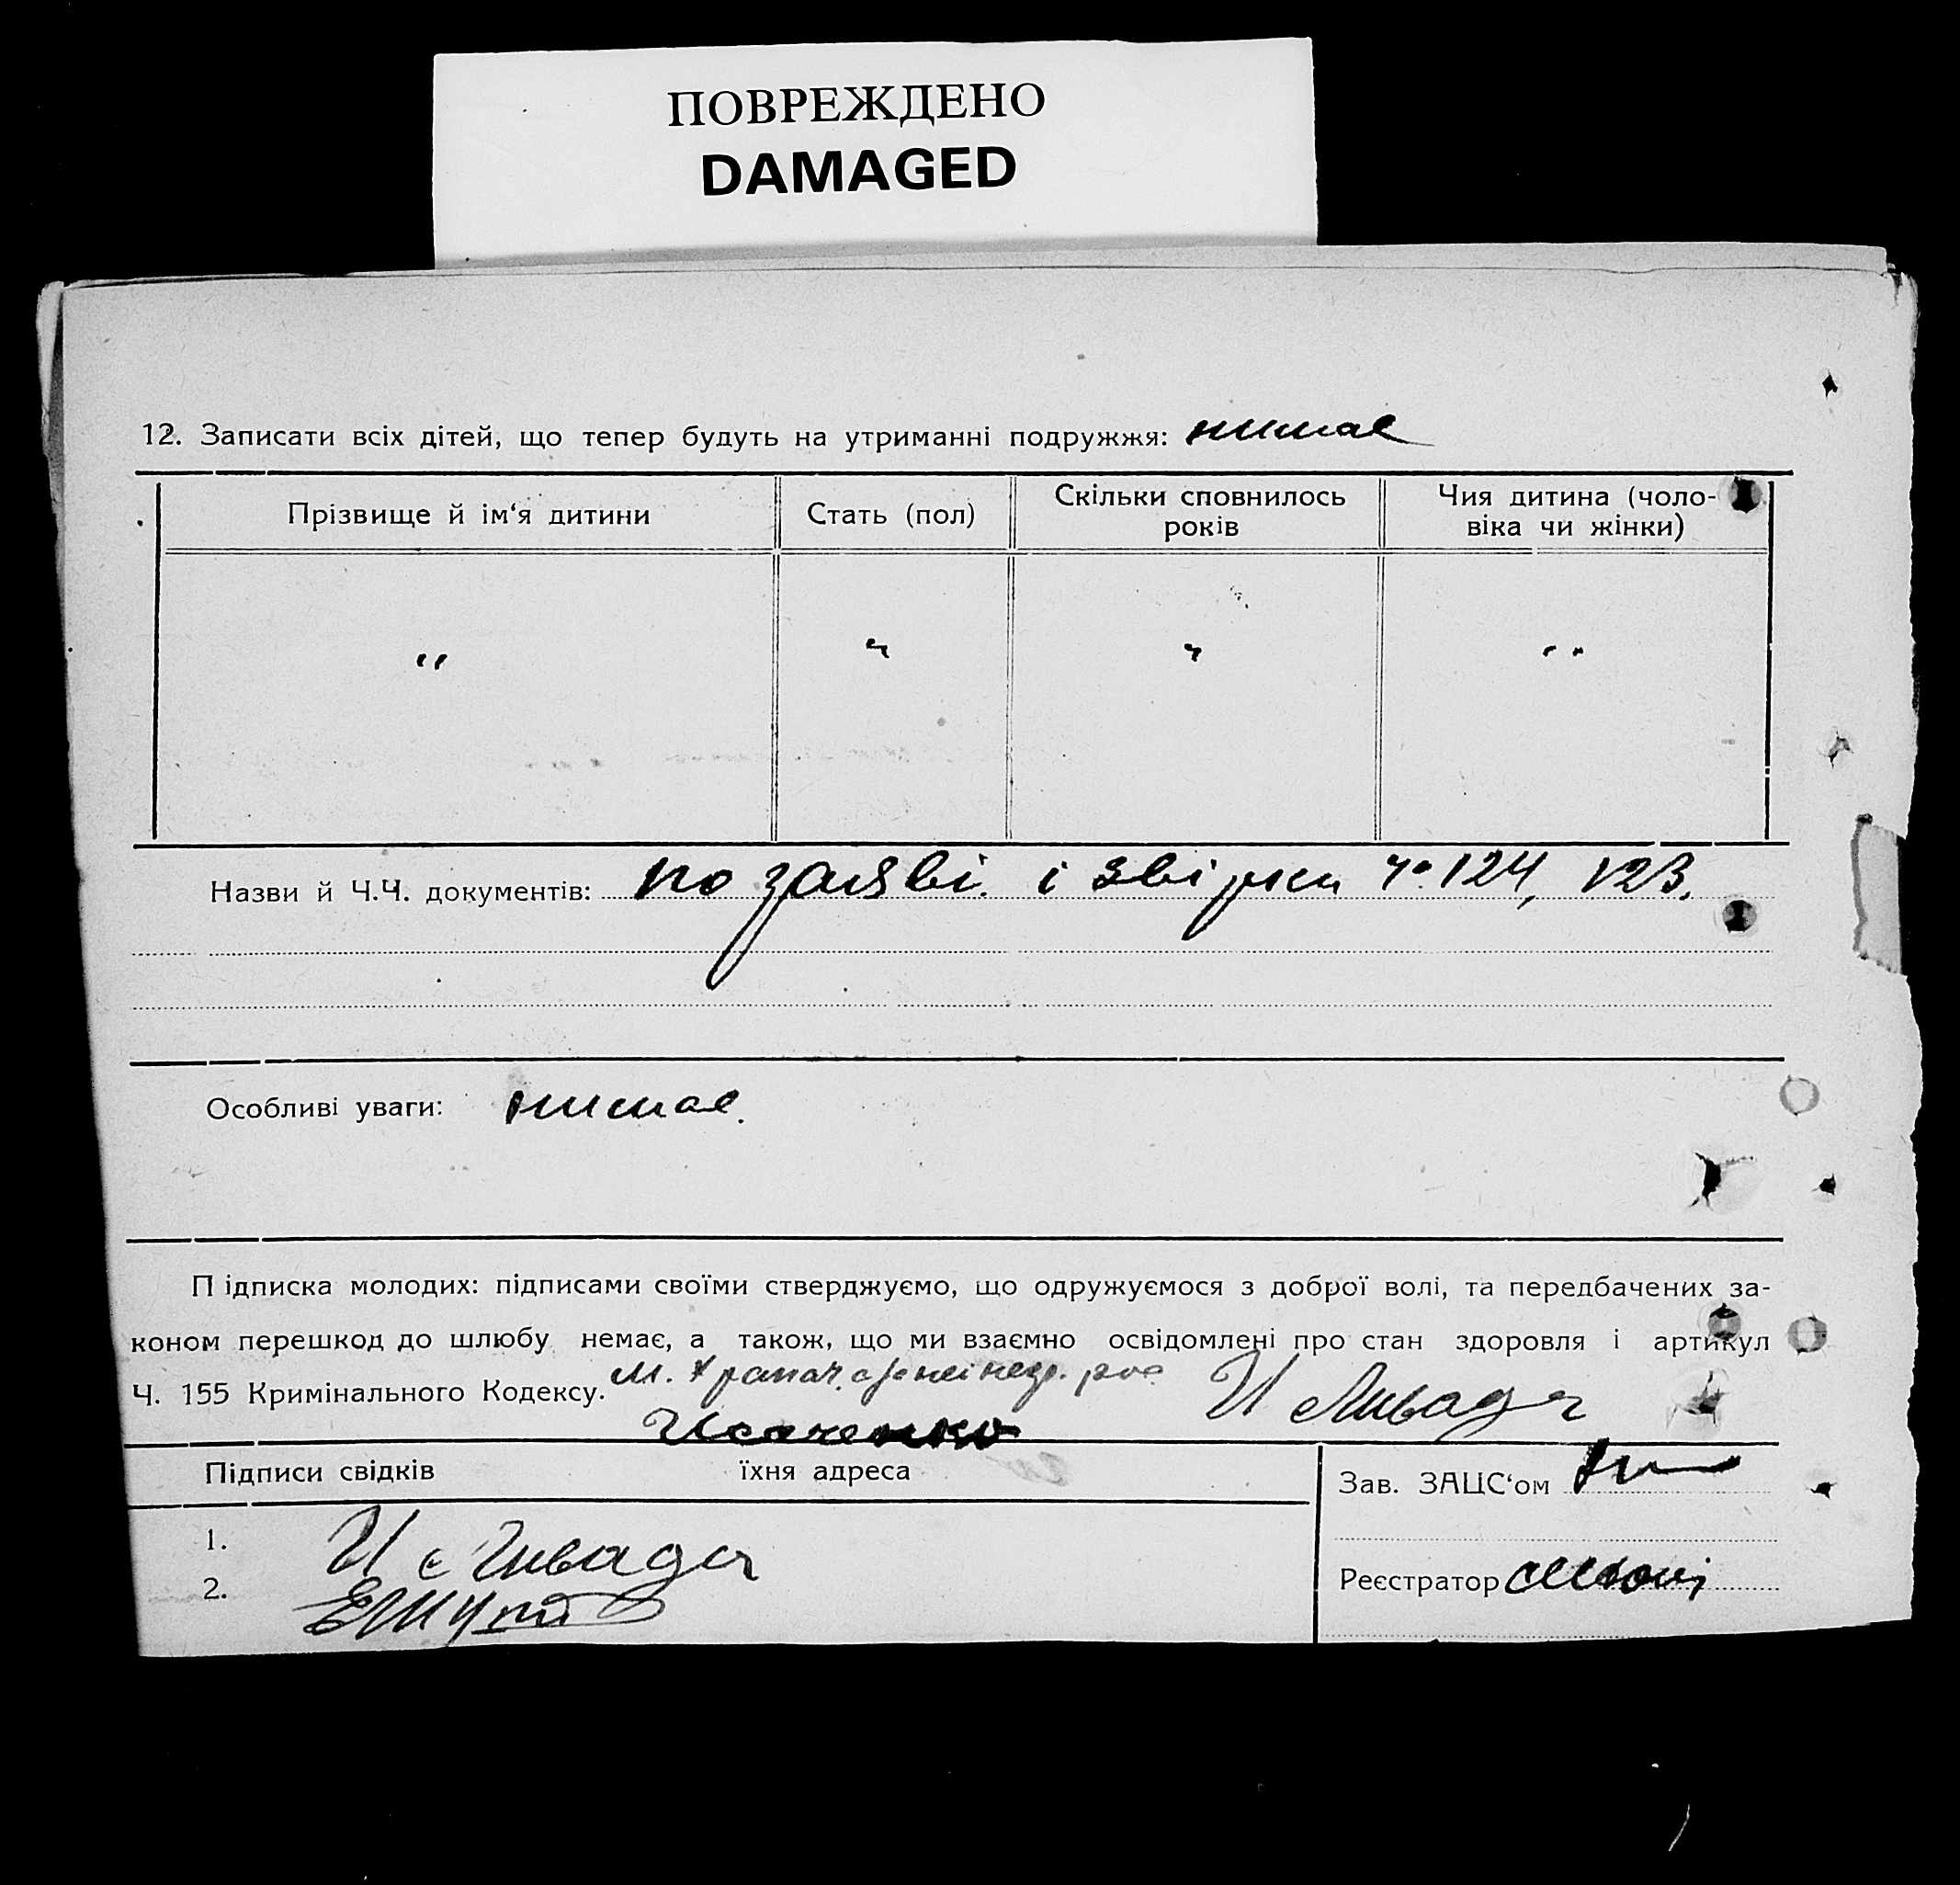 ПОВРЕЖДЕНО
DAMAGED
12. Записати всіх дітей, що тепер будуть на утриманні подружжя: нимае
Прізвище й ім‘я дитини
Стать (пол)
Скільки сповнилось
років
Чия дитина (чоло-
віка чи жінки)
" " " "
Назви й Ч.Ч. документів: по заяві. і звірки 124, 123.
Особливі уваги: нимае.
Підписка молодих: підписами своїми стверджуємо, що одружуємося з доброї волі, та передбачених за-
коном перешкод до шлюбу немає, а також, що ми взаємно освідомлені про стан здоровля і артикул
Ч. 155 Кримінального Кодексу.
Підписи свідків
їхня адреса
Зав. ЗАЦС‘ом
1.
2.
Реєстратор